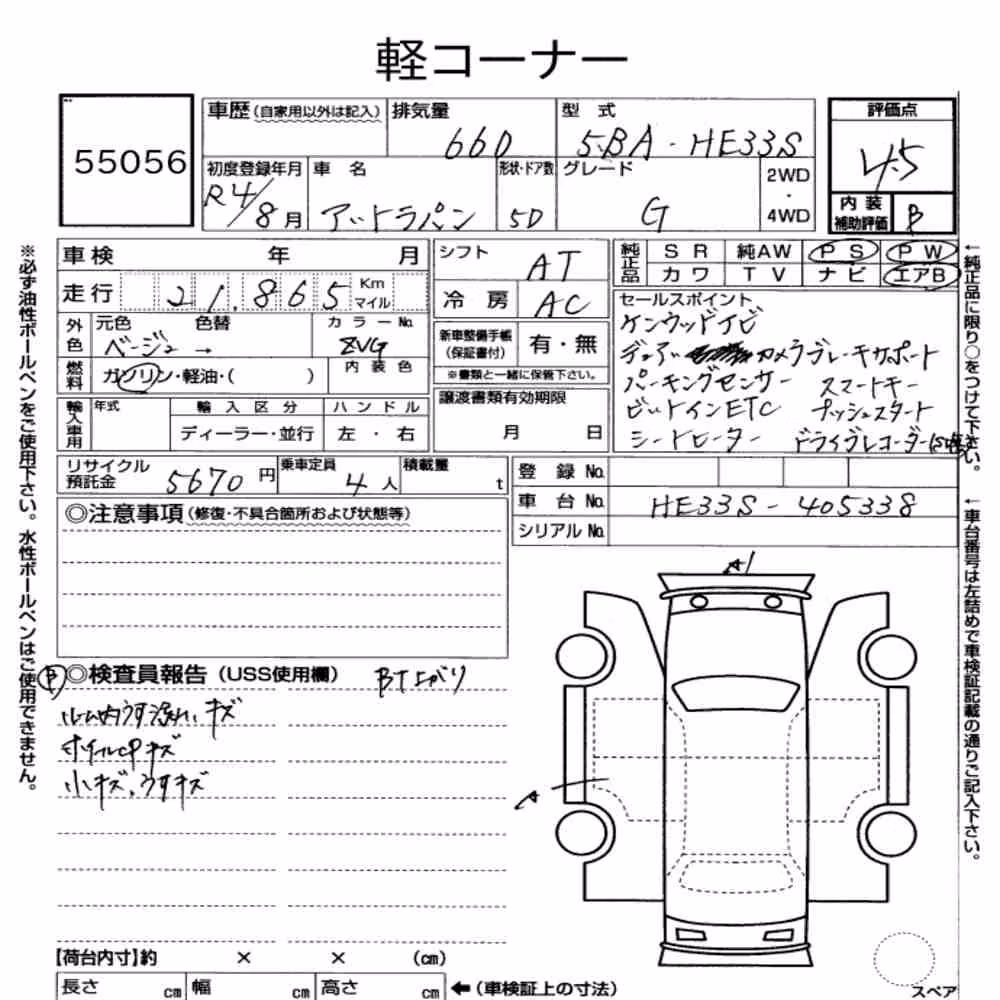 軽コーナー
55056
車歴(自家用以外は記入)
排気量
660
型式
5BA-HE33S
評価点
4.5
初度登録年月
R4/8月
車名
アルトラパン
形状・ドア数
5D
グレード
G
2WD
・
4WD
内装
補助評価
B
車検 年 月
走行 21,865 Km
マイル
シフト
AT
冷房
AC
純正品
SR 純AW PS PW
カワ TV ナビ エアB
外色
元色 色替
ベージュ →
カラーNo.
ZVG
燃料
ガソリン・軽油・( )
内装色
新車整備手帳
(保証書付)
有・無
※書類と一緒に保管下さい。
セールスポイント
ケンウッドナビ
デュアル カメラブレーキサポート
パーキングセンサー スマートキー
ビルトインETC プッシュスタート
シートヒーター ドライブレコーダー
輸入車用
年式
輸入区分
ディーラー・並行
ハンドル
左・右
譲渡書類有効期限
月 日
リサイクル
預託金
5670円
乗車定員
4人
積載量
t
登録No.
車台No. HE33S-405338
シリアルNo.
◎注意事項(修復・不具合箇所および状態等)
A1
◎検査員報告(USS使用欄)
B
BT上がり
ルーム内うす汚れ、キズ
ホイールCPキズ
小キズ、うすキズ
A
【荷台内寸】約 × × (cm)
長さ cm 幅 cm 高さ cm
←(車検証上の寸法)
スペア
※必ず油性ボールペンをご使用下さい。水性ボールペンはご使用できません。
←純正品に限り○をつけて下さい。
←車台番号は左詰めで車検証記載の通りご記入下さい。